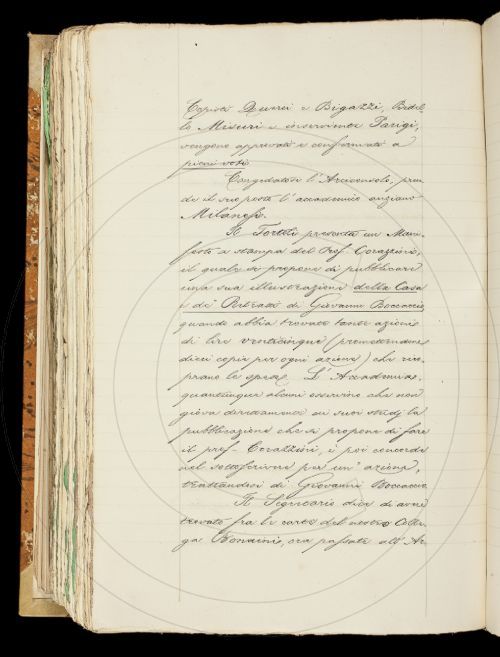 Copisti Querci e Bigazzi, Bidel-
lo Misuri e inserviente Parigi,
vengono approvati e confermati a
pieni voti.
Congedatosi l'Arciconsolo, pren-
de il suo posto l'accademico anziano
Milanesi.
Il Tortoli presenta un Mani-
festo a stampa del Prof. Corazzini,
il quale si propone di pubblicare
una sua illustrazione della Casa
e de' Ritratti di Giovanni Boccaccio
quando abbia trovato tante azioni
di lire venticinque (promettendone
dieci copie per ogni azione) che rico-
prano le spese. L'Accademia,
quantunque alcuni osservino che non
giova direttamente ai suoi studj la
pubblicazione che si propone di fare
il prof. Corazzini, è poi concorde
nel sottoscrivere per un'azione,
trattandosi di Giovanni Boccaccio.
Il Segretario dice di avere
trovato fra le carte del nostro Colle-
ga Bonaini, ora passate all'Ar-